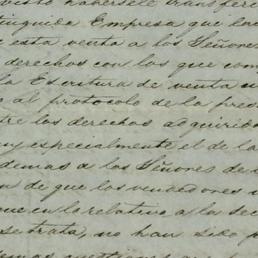 haberséle transfer
inguida Empresa que
esta venta a los Señores
derechos con los que com
la Escritura de venta
al protocolo de la pres
los derechos adquirido
y especialmente el de la
demas a los Señores de
de que los vendedores
que en la relativa a la sec
se trata, no han sido